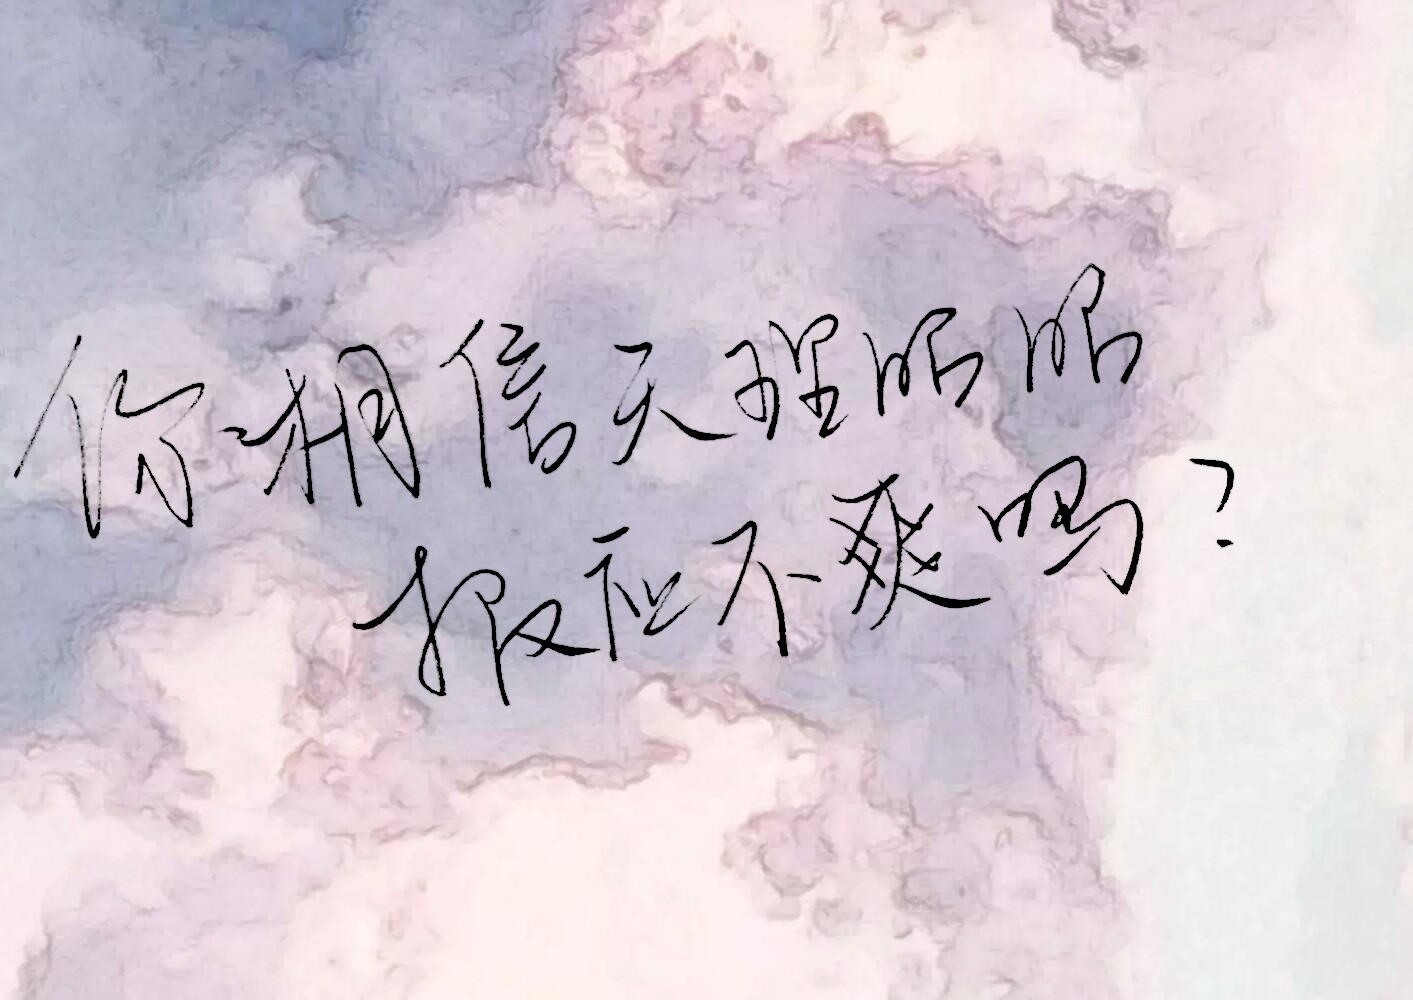 你相信天理昭昭
报应不爽吗?